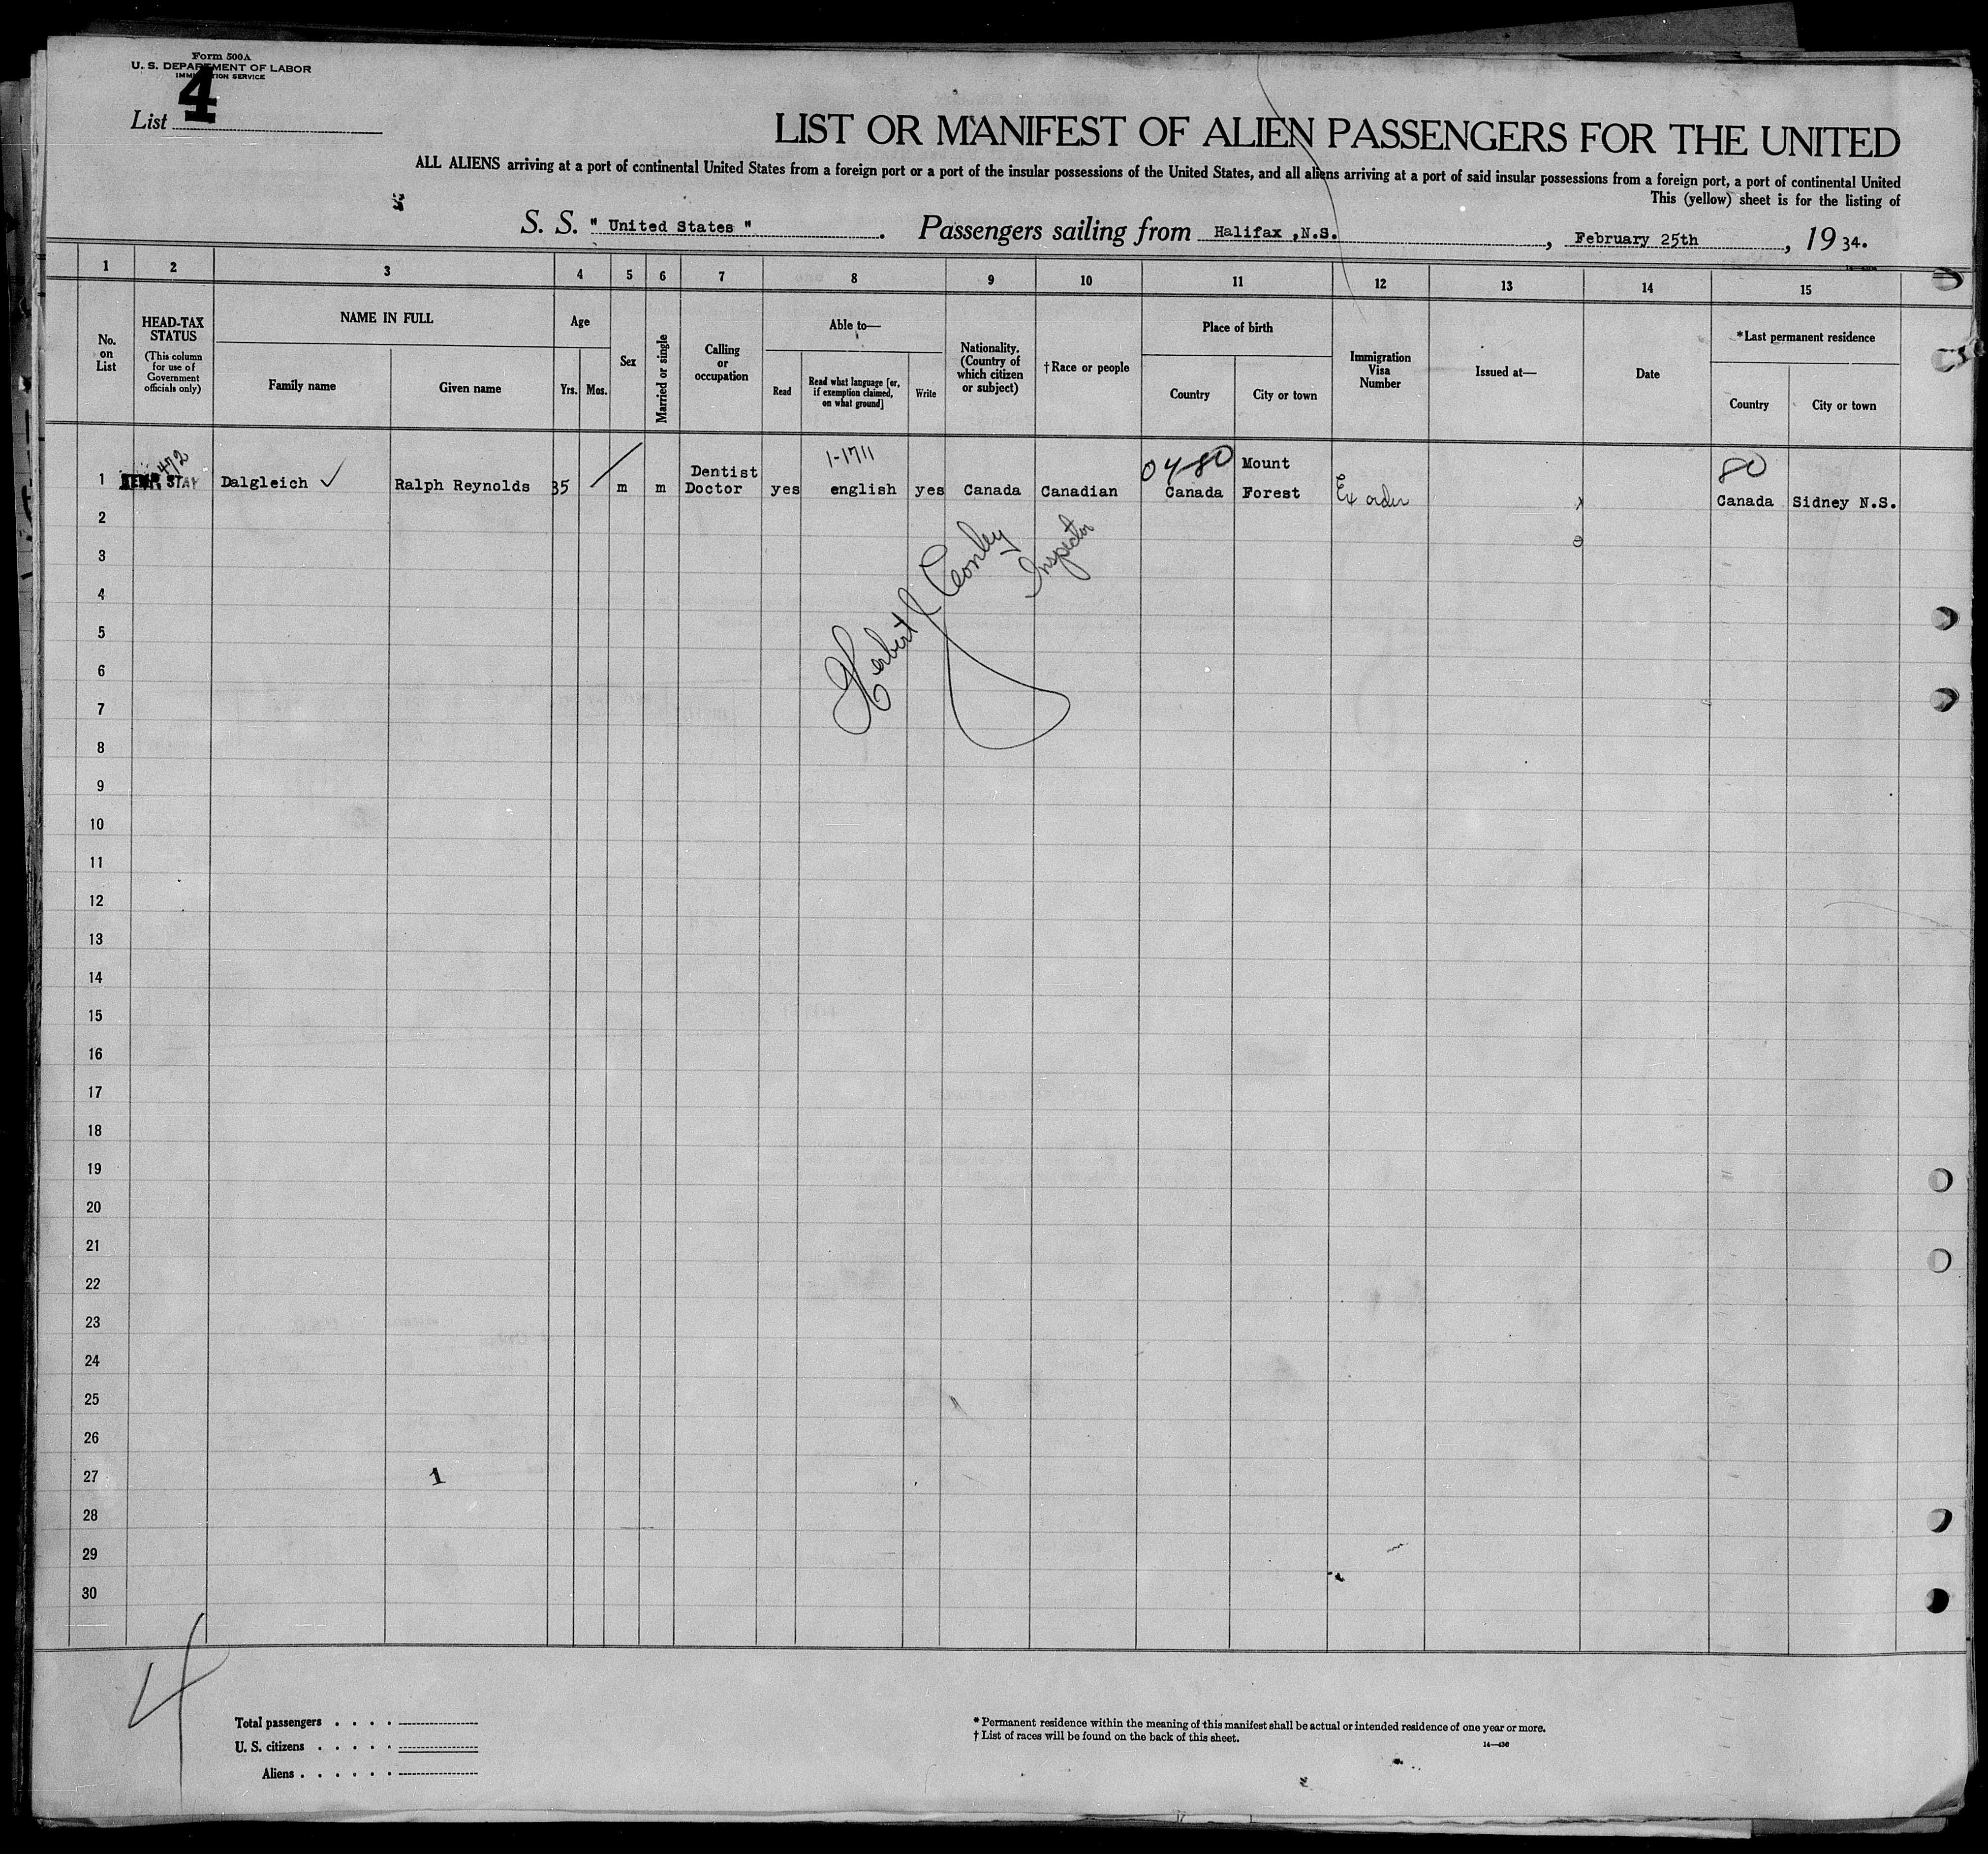 Form 500A
U. S. DEPARTMENT OF LABOR
IMMIGRATION SERVICE
List 4
LIST OR MANIFEST OF ALIEN PASSENGERS FOR THE UNITED
ALL ALIENS arriving at a port of continental United States from a foreign port or a port of the insular possessions of the United States, and all aliens arriving at a port of said insular possessions from a foreign port, a port of continental United
This (yellow) sheet is for the listing of
S. S. " United States ". Passengers sailing from Halifax ,N.S., February 25th, 1934.
1 2 3 4 5 6 7 8 9 10 11 12 13 14 15
No. on List
HEAD-TAX STATUS
(This column for use of Government officials only)
NAME IN FULL
Family name
Given name
Age
Yrs. Mos.
Sex
Married or single
Calling or occupation
Able to—
Read
Read what language [or, if exemption claimed, on what ground]
Write
Nationality. (Country of which citizen or subject)
†Race or people
Place of birth
Country
City or town
Immigration Visa Number
Issued at—
Date
*Last permanent residence
Country
City or town
472
1-1711
0480
80
Dentist
Mount
1 TEMP. STAY Dalgleich ✓ Ralph Reynolds 35 m m Doctor yes english yes Canada Canadian Canada Forest Ex order Canada Sidney N.S.
2
3
Herbert Conley
Inspector
4
5
6
7
8
9
10
11
12
13
14
15
16
17
18
19
20
21
22
23
24
25
26
27 1
28
29
30
4
Total passengers . . . .
U. S. citizens . . . . .
Aliens . . . . . .
* Permanent residence within the meaning of this manifest shall be actual or intended residence of one year or more.
† List of races will be found on the back of this sheet.
14—430